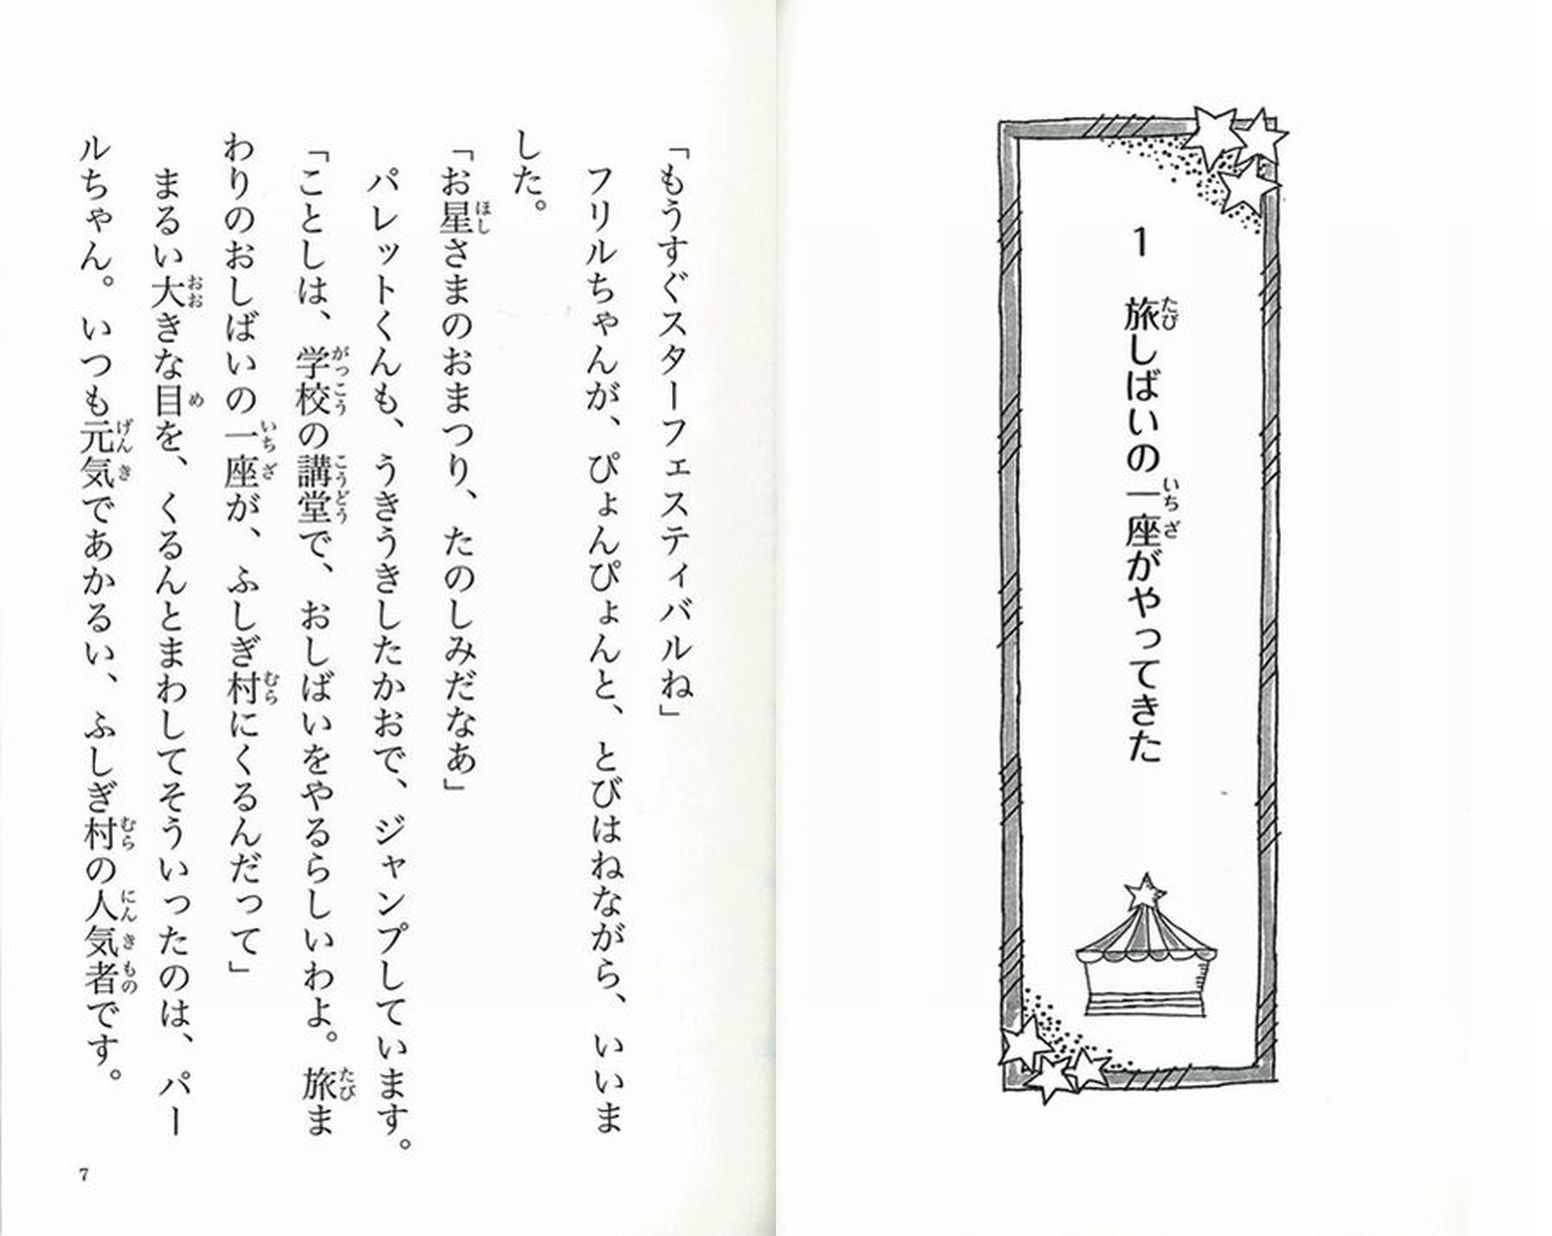 1 旅しばいの一座がやってきた
「もうすぐスターフェスティバルね」
フリルちゃんが、ぴょんぴょんと、とびはねながら、いいま
した。
「お星さまのおまつり、たのしみだなあ」
パレットくんも、うきうきしたかおで、ジャンプしています。
「ことしは、学校の講堂で、おしばいをやるらしいわよ。旅ま
わりのおしばいの一座が、ふしぎ村にくるんだって」
まるい大きな目を、くるんとまわしてそういったのは、パー
ルちゃん。いつも元気であかるい、ふしぎ村の人気者です。
7